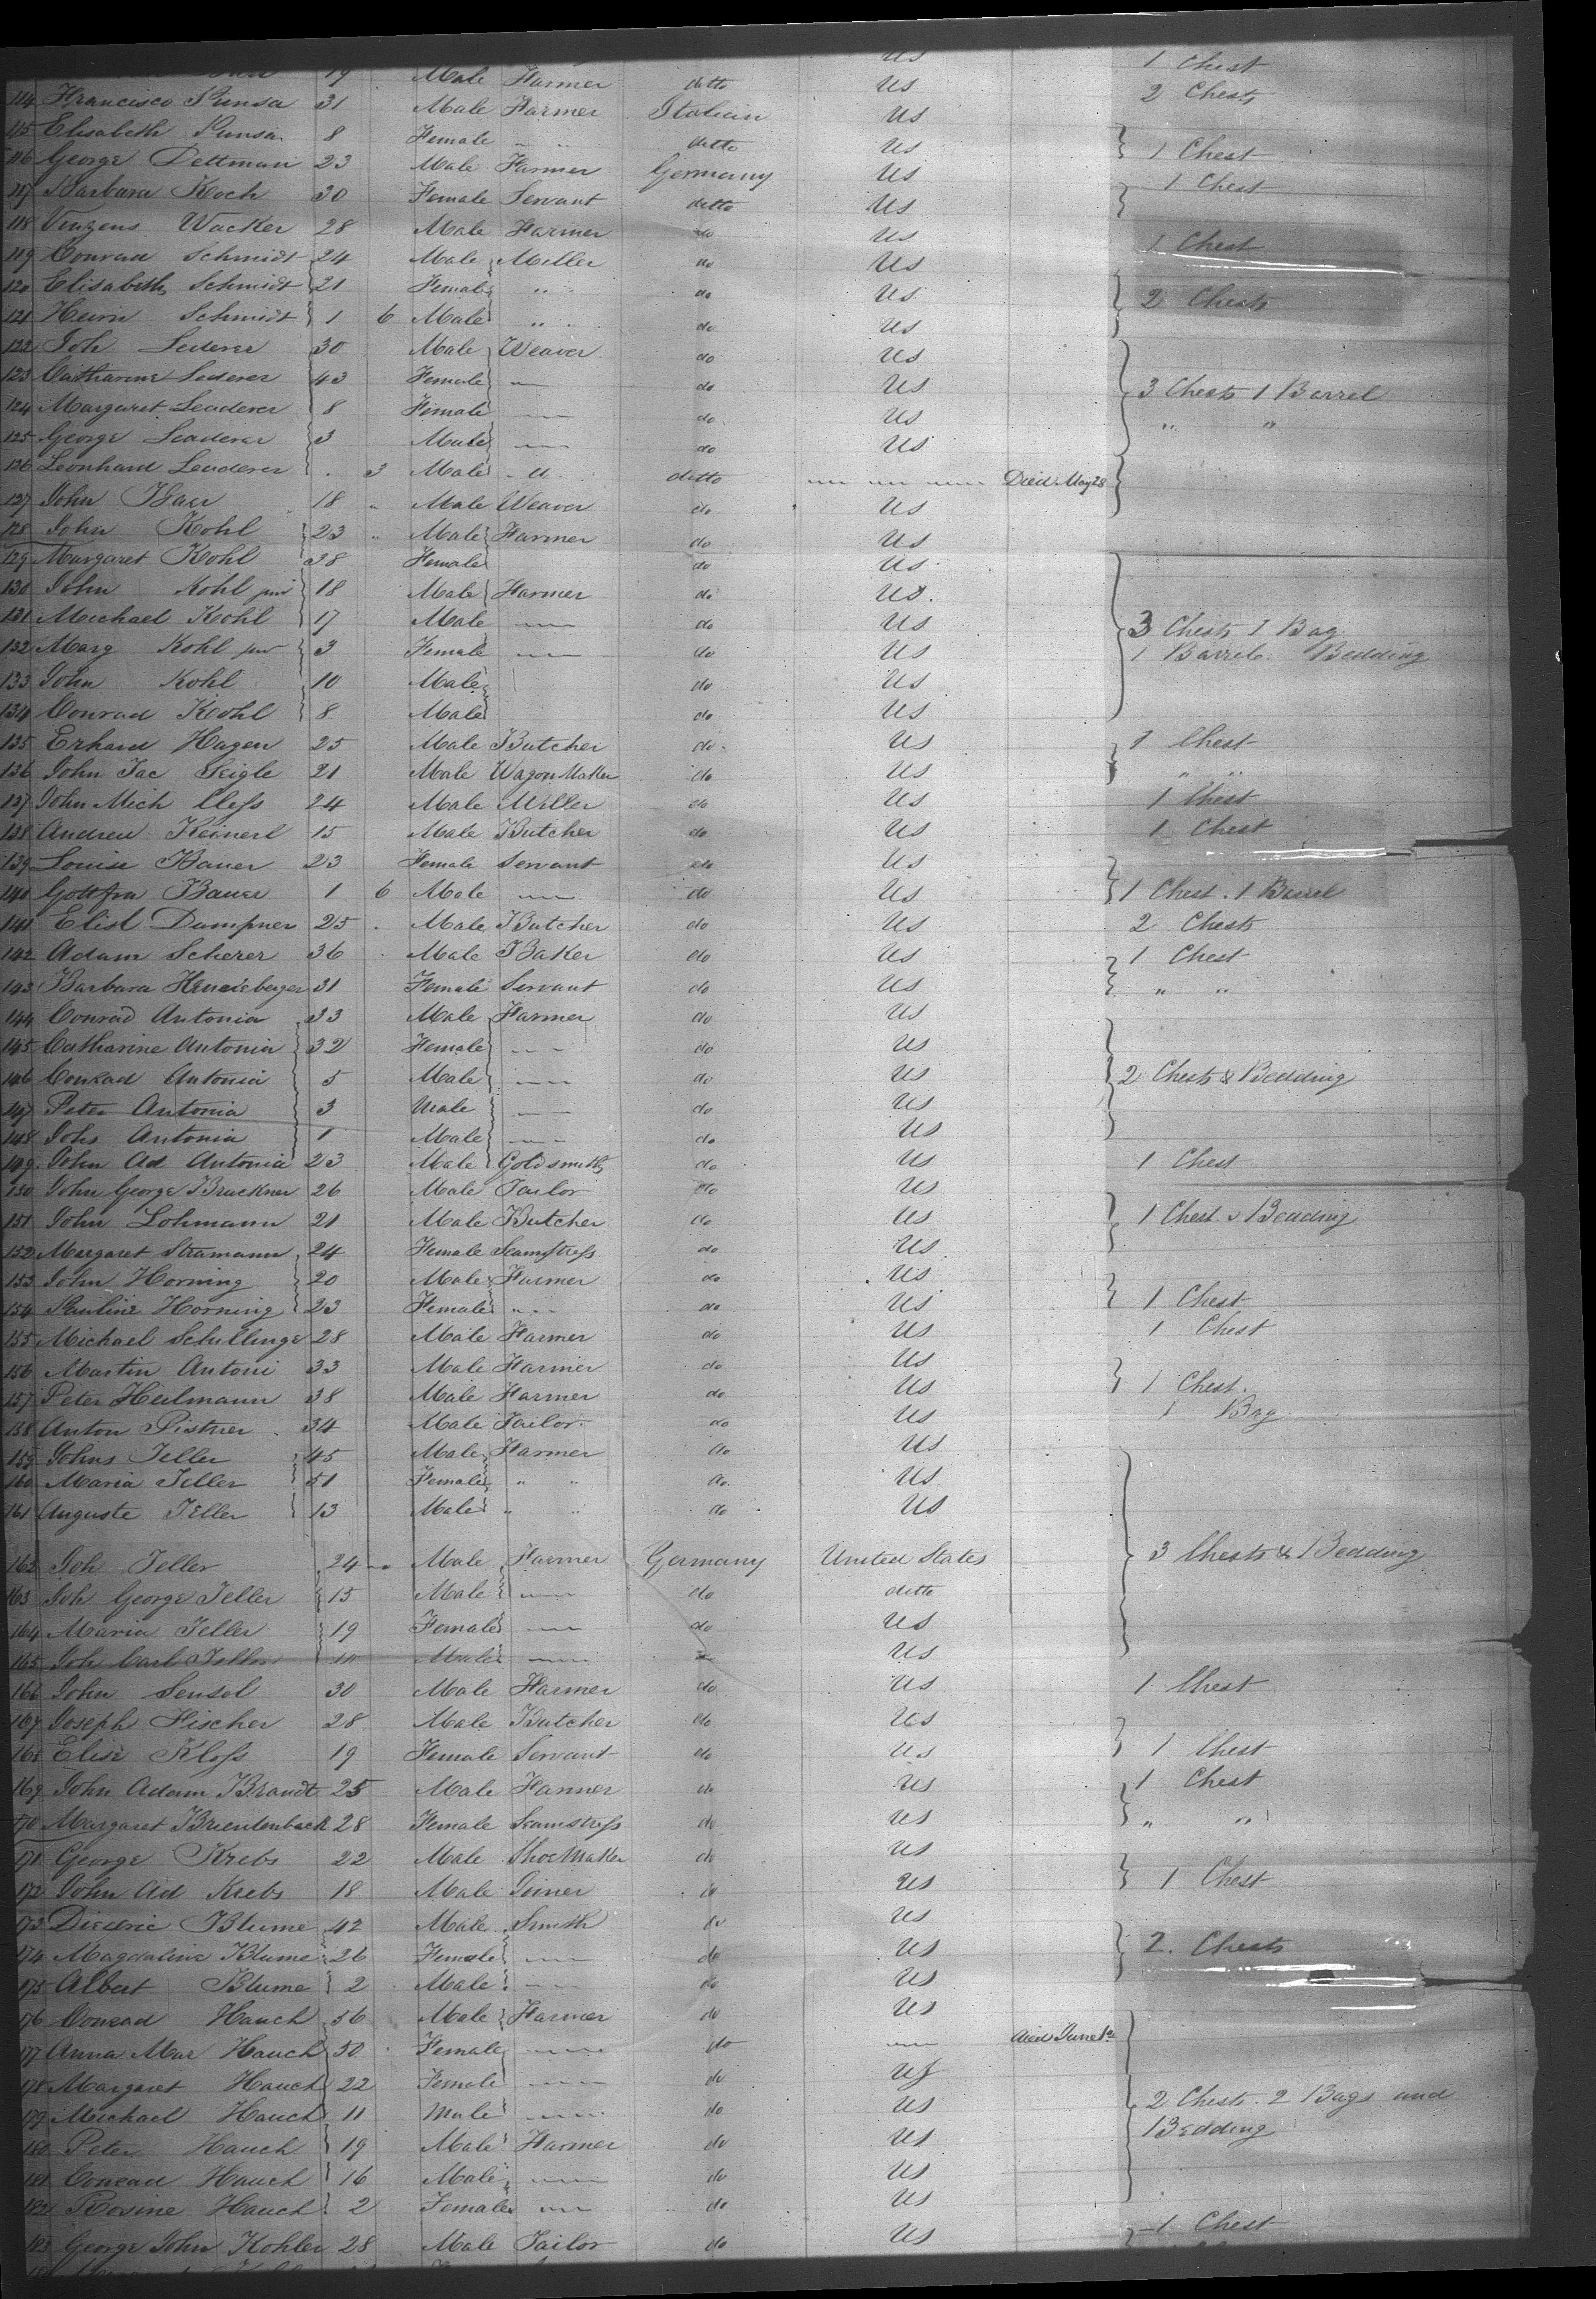 19 Male Farmer ditto US 1 Chest
114 Francisco Punsa 31 Male Farmer Italian US 2 Chests
115 Elisabeth Punsa 8 Female " " ditto US
116 George Dettman 23 Male Farmer Germany US 1 Chest
117 Barbara Koch 30 Female Servant ditto US 1 Chest
118 Vinzens Wacker 28 Male Farmer do US
119 Conrad Schmidt 24 Male Miller do US 1 Chest
120 Elisabeth Schmidt 21 Female " do US 2 Chests
121 Schmidt 1 6 Male " do US
122 Joh Lederer 30 Male Weaver do US
123 Catharine Lederer 43 Female " do US 3 Chests 1 Barrel
124 Margaret Leaderer 8 Female do US " "
125 George Leaderer 3 Male do US
126 Leonhard Leaderer 3 Male " ditto Died May 28
127 John Baer 18 " Male Weaver do US
128 John Kohl 23 " Male Farmer do US
129 Margaret Kohl 38 Female do US
130 John Kohl jun 18 Male Farmer do US
131 Michael Kohl 17 Male do US 3 Chests 1 Bag
132 Marg Kohl jun 3 Female do US 1 Barrel Bedding
133 John Kohl 10 Male do US
134 Conrad Kohl 8 Male do US
135 Erhard Hagen 25 Male Butcher do US 1 Chest
136 John Jac Seigle 21 Male Wagon Maker do US " "
137 John Mich Cless 24 Male Miller do US 1 Chest
138 Andreu Keinerl 15 Male Butcher do US 1 Chest
139 Louise Bauer 23 Female Servant do US
140 Gottfra Bauer 1 6 Male do US 1 Chest . 1 Barrel
141 Elist Dumpner 25 Male Butcher do US 2 Chests
142 Adam Scherer 36 Male Baker do US 1 Chest
143 Barbara 31 Female Servant do US " "
144 Conrad Antonia 33 Male Farmer do US
145 Catharine Antonia 32 Female do US
146 Conrad Antonia 5 Male do US 2 Chests & Bedding
147 Peter Antonia 3 Male do US
148 Johs Antonia 1 Male do US
149 John Ad Antonia 23 Male Goldsmith do US 1 Chest
150 John George Bruckner 26 Male Tailor do US
151 John Lohmann 21 Male Butcher do US 1 Chest & Bedding
152 Margaret Stramann 24 Female Seamstress do US
153 John Horning 20 Male Farmer do US
154 Pauline Horning 23 Female " do US 1 Chest
155 Michael Schullinge 28 Male Farmer do US 1 Chest
156 Martin Antoni 33 Male Farmer do US
157 Peter Heilmann 38 Male Farmer do US 1 Chest
158 Anton Pistner 34 Male Tailor do US 1 Bag
159 Johns Teller 45 Male Farmer do US
160 Maria Teller 51 Female " " do US
161 Auguste Teller 13 Male " " do US
162 Joh Teller 24 Male Farmer Germany United States 3 Chests & Bedding
163 Joh George Teller 15 Male do ditto
164 Maria Teller 19 Female do US
165 Joh Carl Teller Male US
166 John Sensel 30 Male Farmer do US 1 Chest
167 Joseph Fischer 28 Male Butcher do US
168 Elise Kloss 19 Female Servant do US 1 Chest
169 John Adam Brandt 25 Male Farmer do US 1 Chest
170 Margaret Brientenback 28 Female Seamstress do US " "
171 George Krebs 22 Male Shoe Maker do US
172 John Ad Krebs 18 Male Joiner do US 1 Chest
173 Diedric Blume 42 Male Smith do US
174 Magdaline Blume 26 Female do US 2 Chests
175 Albert Blume 2 Male do US
176 Conrad Hauch 56 Male Farmer do US
177 Anna Mar Hauch 50 Female do died June 1st
178 Margaret Hauch 22 Female do US
179 Michael Hauch 11 Male do US 2 Chests 2 Bags and
180 Peter Hauch 19 Male Farmer do US Bedding
181 Conrad Hauch 16 Male do US
182 Rosine Hauch 2 Female do US
183 George John Kohler 28 Male Tailor do US 1 Chest